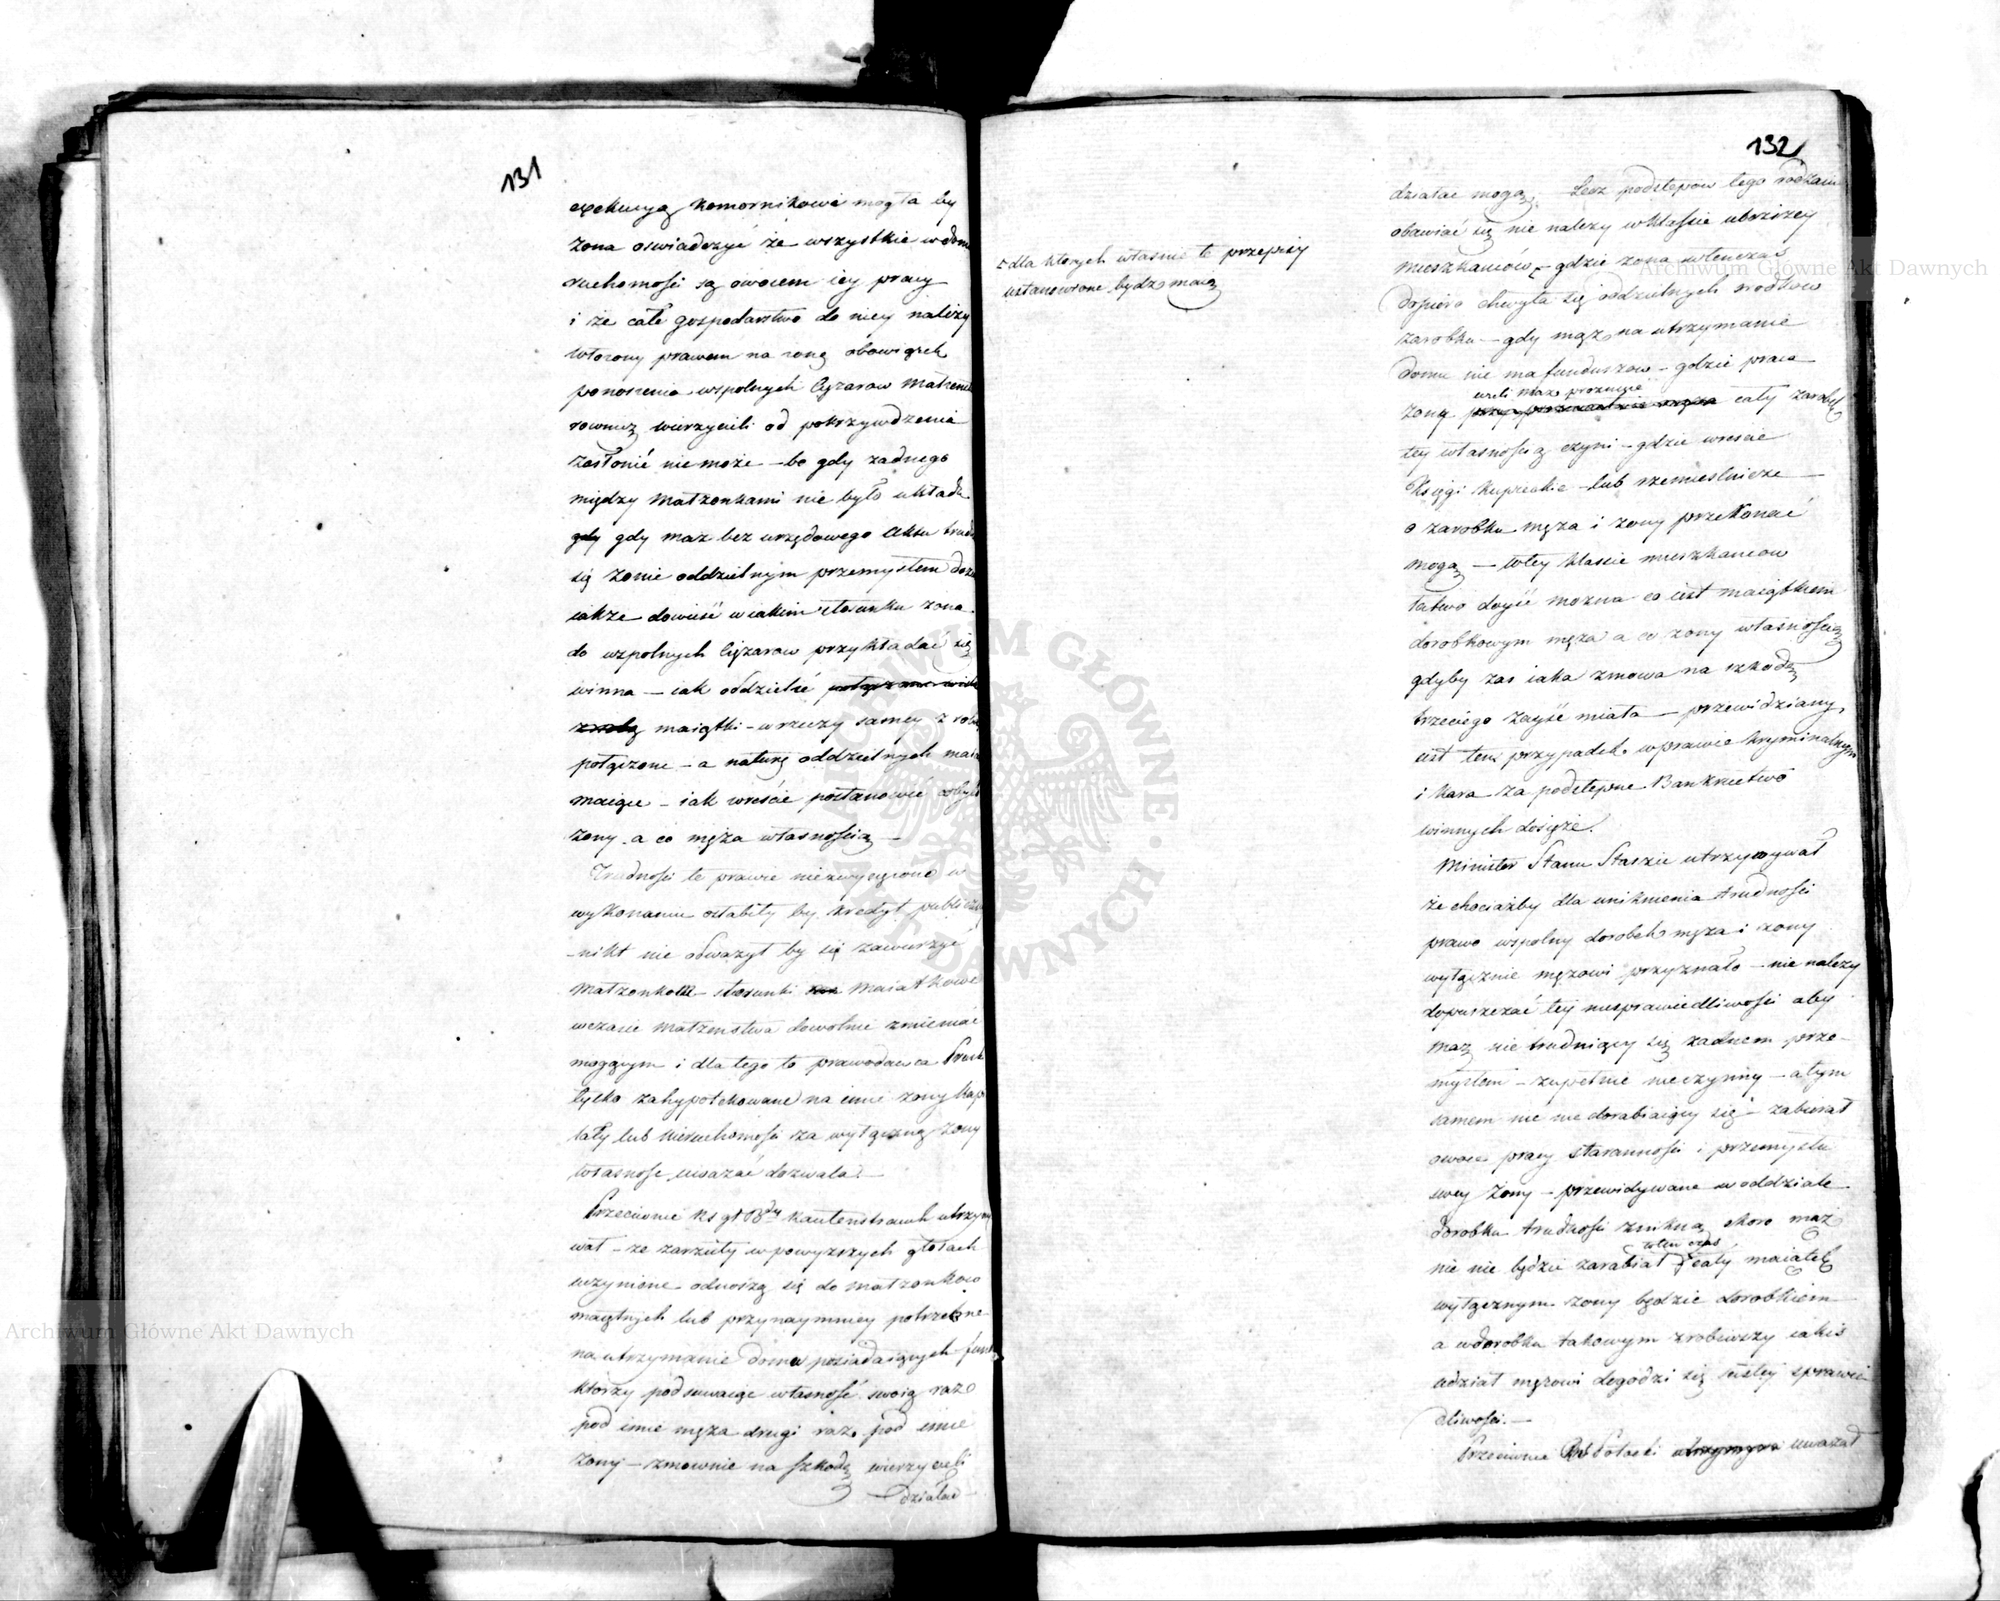 131
exekucyą komornikowi mogła by
żona oświadczyć że wszystkie w domu
ruchomości są owocem iey pracy
i że całe gospodarstwo do niey należy
włożony prawem na żonę obowiązek
ponoszenia wspolnych ciężarow małżeńs
rownież wierzycieli od pokrzywdzenia
zasłonić nie może – bo gdy żadnego
między małżonkami nie było układu
gdy gdy mąż bez urzędowego aktu trudn
się żonie oddzielnym przemysłem dozw
iakże dowieść w iakim stosunku żona
do wspolnych ciężarow przykładać się
winna – iak oddzielić
maiątki – w rzeczy samey z sobą
połączone – a naturę oddzielnych maią
maiące – iak wreście postanowić coby
żony a co męża własnością –
Trudności te prawie niezwyciężone w
wykonaniu osłabiły by kredyt publiczny
– nikt nie odważył by się zawierzyć
Małżonkom stosunki maiątkowe
w czasie małżeństwa dowolnie zmieniać
mogącym i dla tego to prawodawca Pruski
tylko zahypotekowane na imie żony kapi
tały lub nieruchomości za wyłączną żony
własność uważać dozwala. –
Przeciwnie Ks gł Bdy Kautenstrauch utrzymy
wał – że zarzuty w powyższych głosach
uczynione odnoszą się do małżonkow
maiętnych lub przynaymniey potrzebne
na utrzymanie domu posiadaiących fund
ktorzy podsuwaiąc własność swoią raz
pod imie męża drugi raz pod imie
żony – zmownie na szkodę wierzycieli
działać
132
działać mogą. Lecz podstępow tego rodzaiu
obawiać się nie należy w klassie uboższey
mieszkańcow – gdzie żona wtenczas
dopiero chwyta się oddzielnych srodkow
zarobku – gdy mąż na utrzymanie
domu nie ma funduszow – gdzie praca
ieżeli mąż prożnuie
żony cały zarobek
iey własnością czyni – gdzie wreście
Księgi kupieckie – lub rzemieślnicze –
o zarobku męża i żony przekonać
mogą – w tey klassie mieszkańcow
łatwo doyść można co iest maiątkiem
dorobkowym męża a co żony własnością
gdyby zaś iaka zmowa na szkodę
trzeciego zayść miała – przewidziany
iest ten przypadek w prawie kryminalnym
i kara za podstępne Bankructwo
winnych dosięże.
Minister Stanu Staszic utrzymywał
że chociażby dla uniknienia trudności
prawo wspolny dorobek męża i żony
wyłącznie mężowi przyznało – nie należy
dopuszczać tey niesprawiedliwości aby
mąż nie trudniący się żadnem prze-
mysłem – zupełnie nieczynny – a tym
samem nic nie dorabiaiący się – zabierał
owoce pracy staranności i przemysłu
swey żony – przewidywane w oddziale
dorobku trudności znikną skoro mąż
nic nie będzie zarabiał
wten czas
cały maiątek
wyłącznym żony będzie dorobkiem
a w dorobku takowym zrobiwszy iakiś
udział mężowi dogodzi się ścisłey sprawie
dliwości. –
Przeciwnie Potocki utrzymywa uważał
dla ktorych własnie te przepisy
ustanowione bydź maią